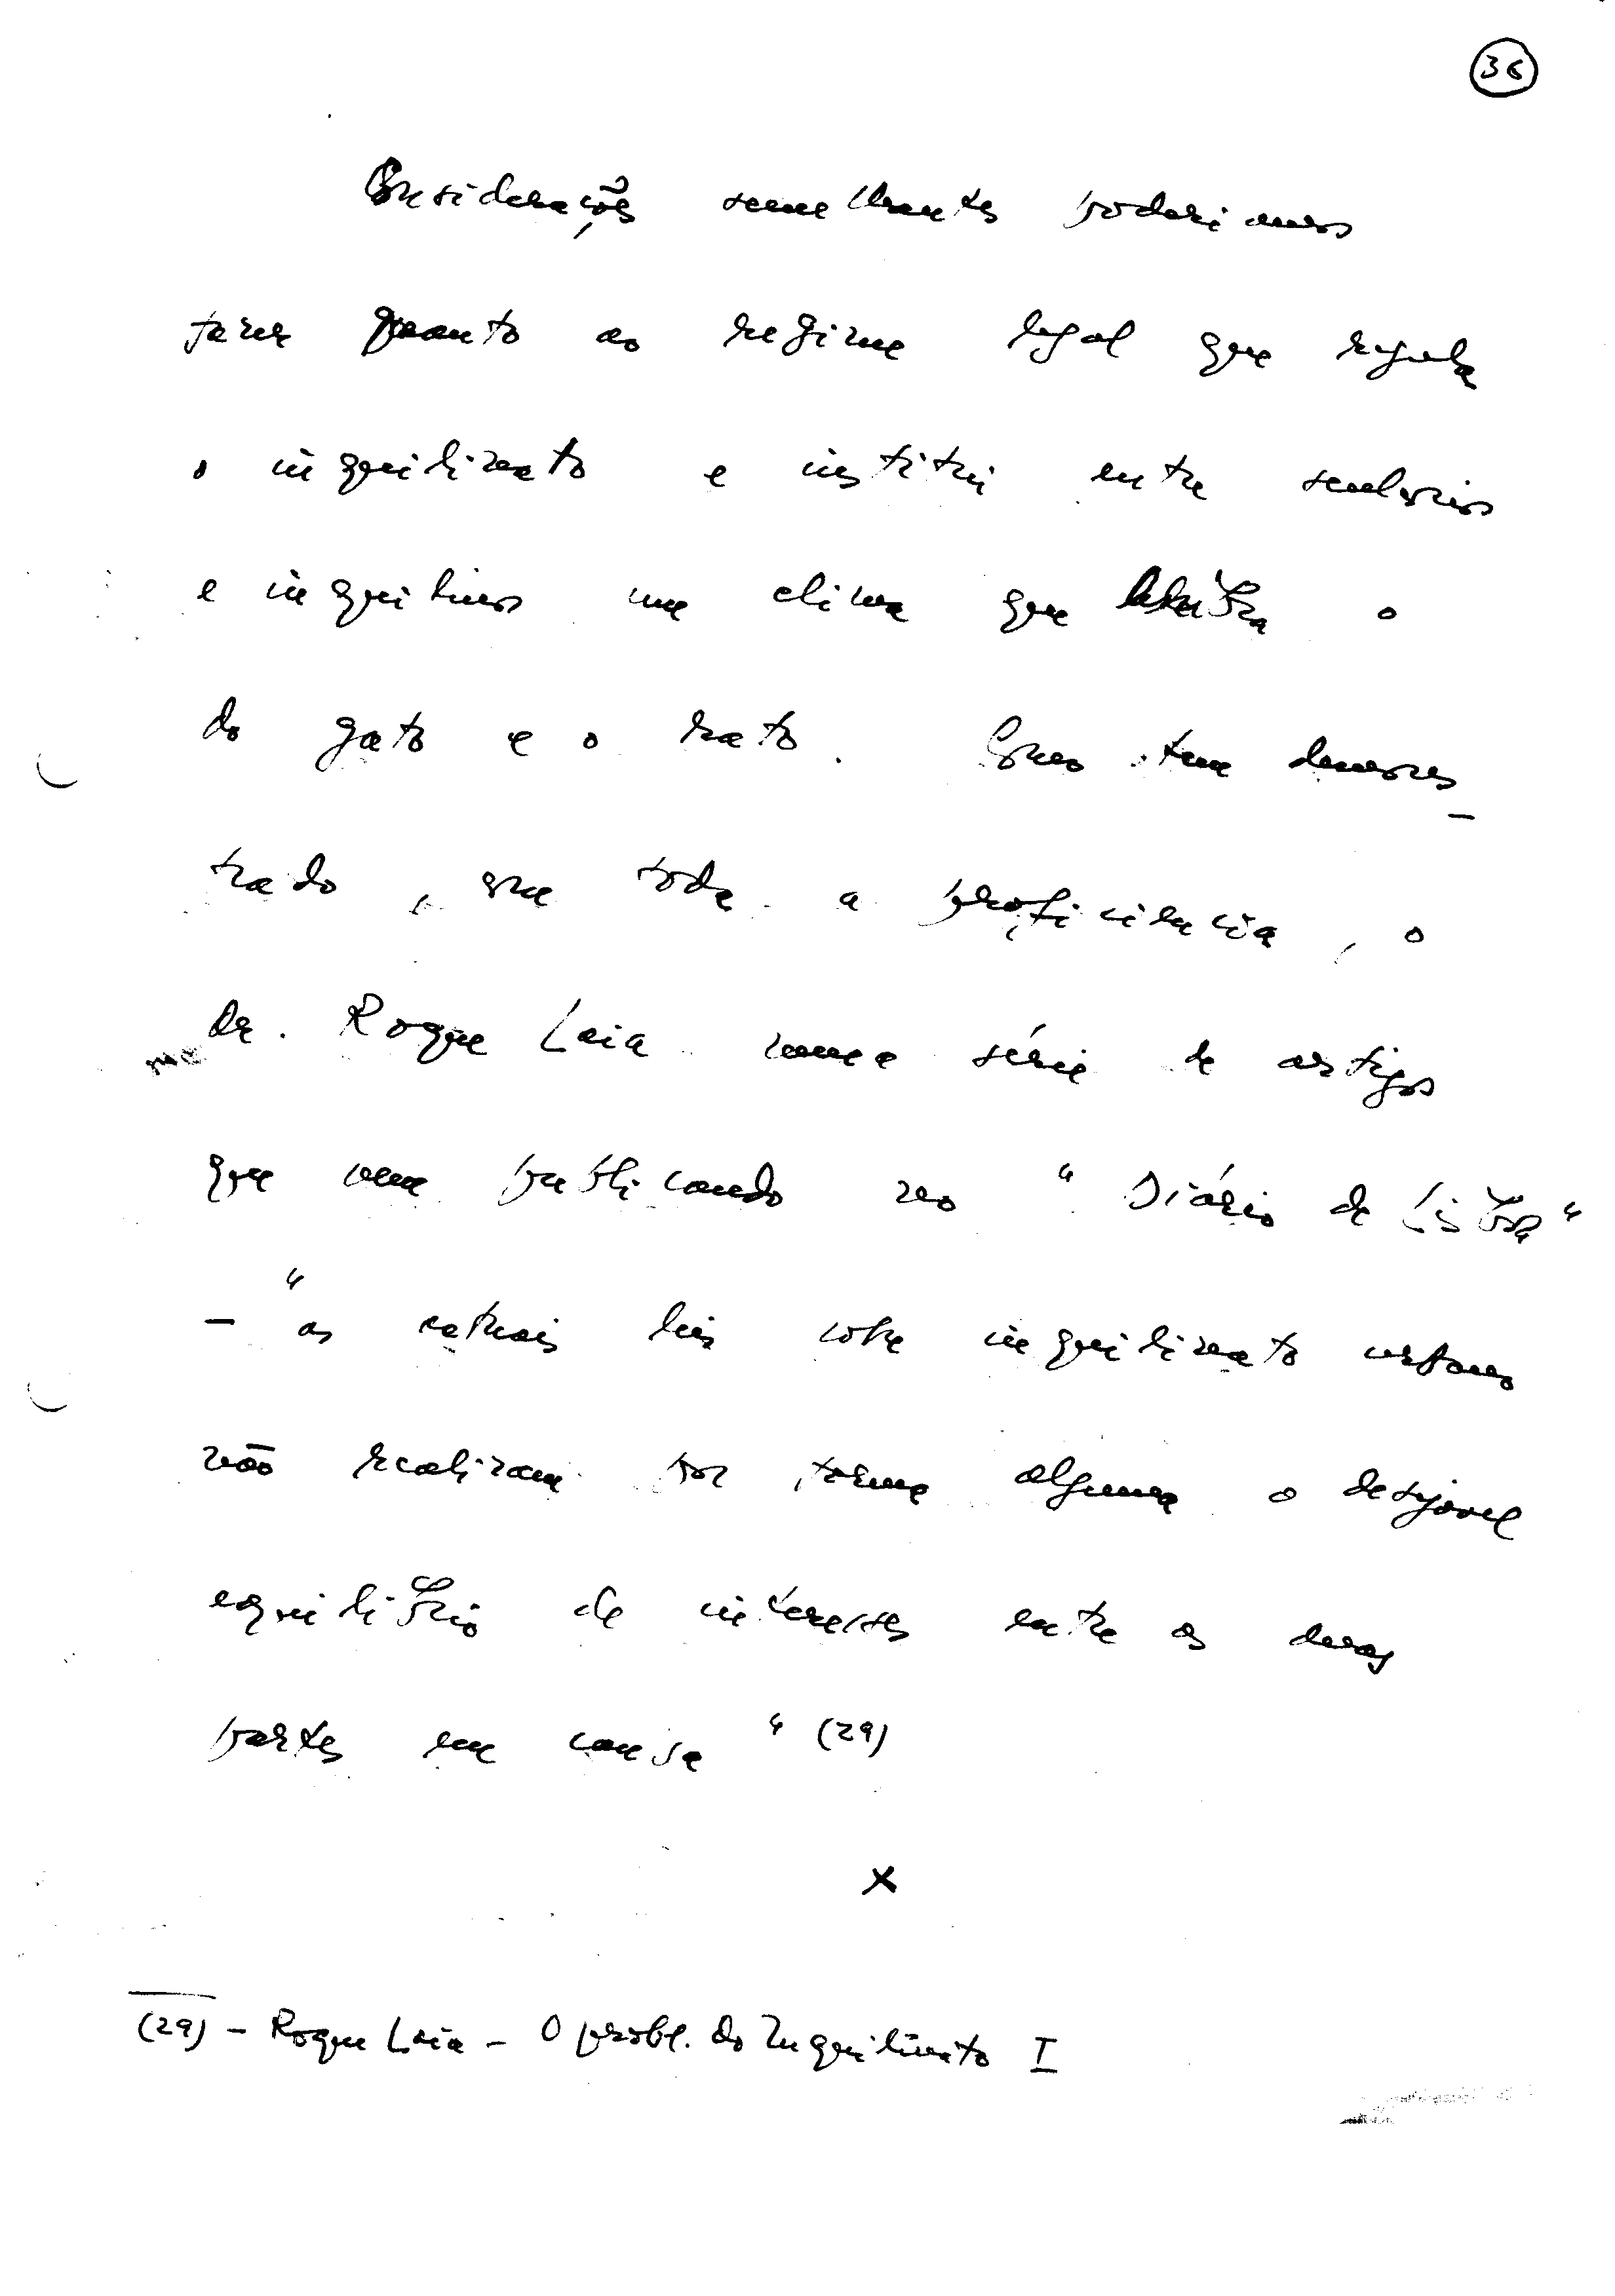 36
Considerações semelhantes poderiamos
fazer quanto ao regime legal que regula
o inquilinato e institui entre senhorios
e inquilinos um clima que lembra o
do gato e o rato. Como tem demons-
trado, com toda a proficiencia, o
dr. Roque Laia numa série de artigos
que vem publicando no "Diário de Lisboa"
- "as actuais leis sobre inquilinato urbano
não realizam por forma alguma o desejavel
equilíbrio de interesses entre as duas
partes em causa" (29)
x
(29) - Roque Laia - O probl. do Inquilinato I